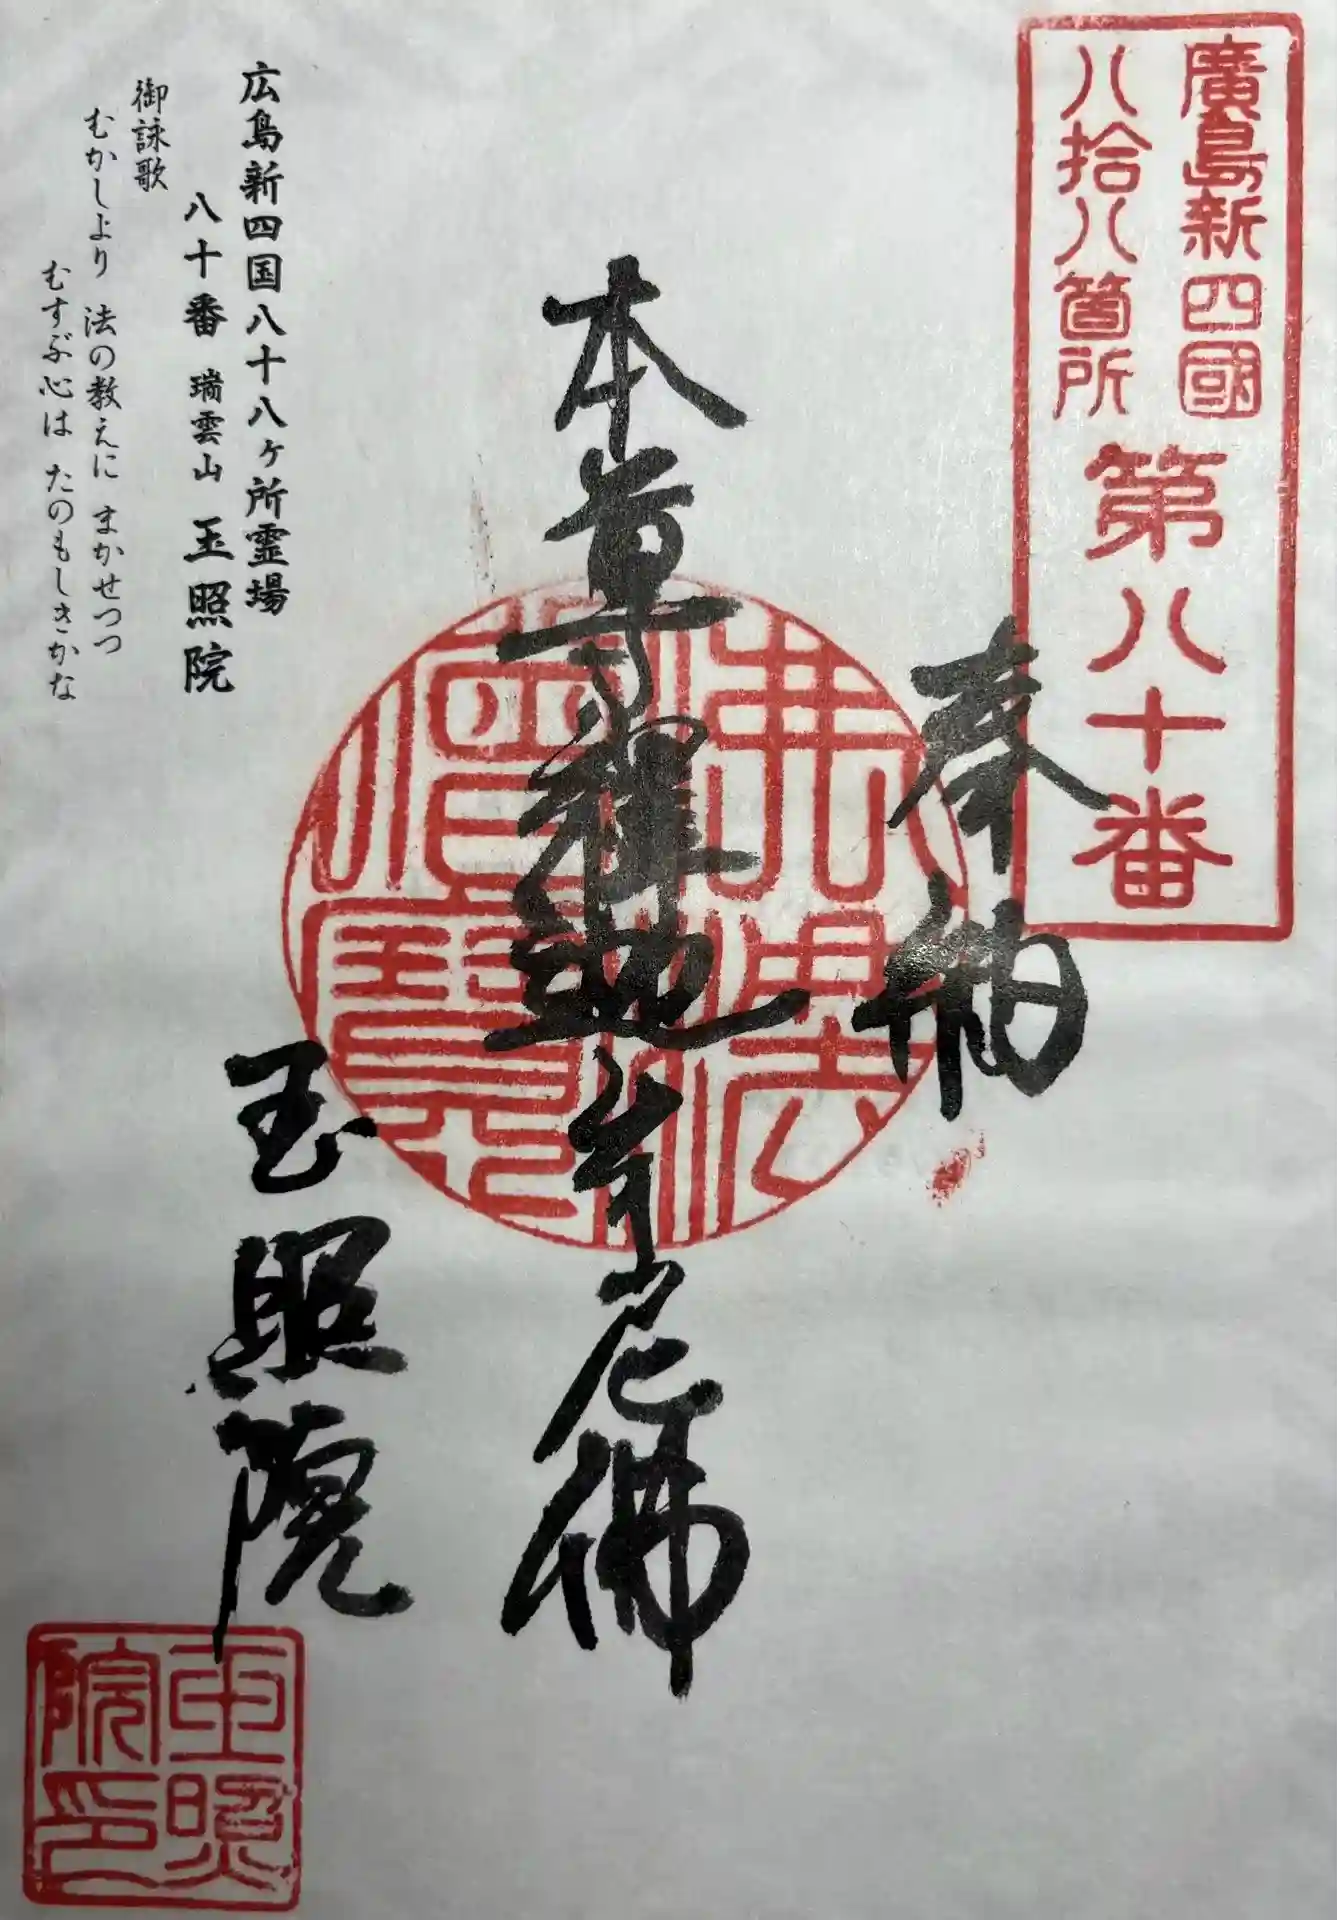 廣島新四國
八拾八箇所
第八十番
奉納
本尊釋迦牟尼佛
佛法
僧寳
玉照院
玉照
院印
広島新四国八十八ヶ所霊場
八十番 瑞雲山 玉照院
御詠歌
むかしより 法の教えに まかせつつ
むすぶ心は たのもしきかな